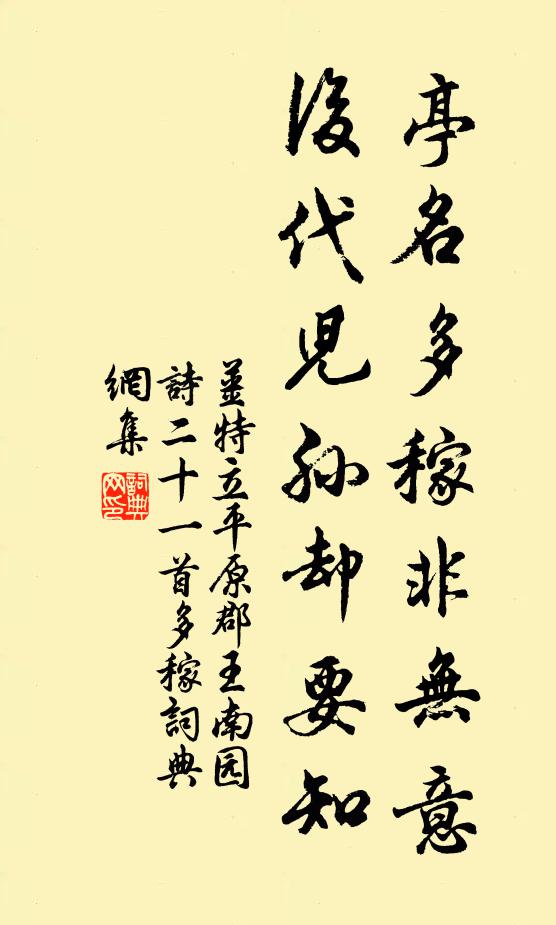 亭名多稼非無意
後代兒孙却要知
薑特立平原郡王南园
詩二十一首多稼詞典
網集
詞典
网印